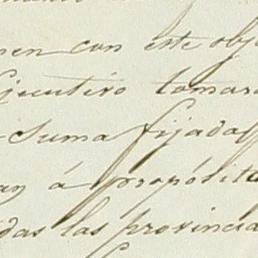 nen con este obj
Ejecutivo tomar
suma fijada
an á propósito
das las provincia